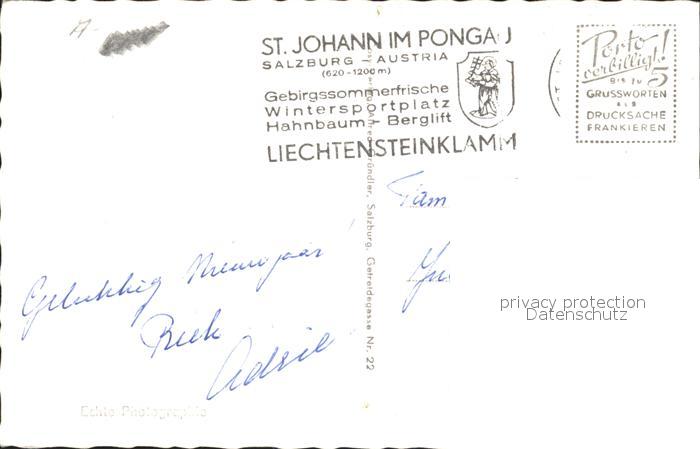 ST. JOHANN IM PONGAU
SALZBURG – AUSTRIA
(620-1200m)
Gebirgssommerfrische
Wintersportplatz
Hahnbaum – Berglift
LIECHTENSTEINKLAMM
Porto
verbilligt!
BIS ZU 5
GRUSSWORTEN
ALS
DRUCKSACHE
FRANKIEREN
Fam
Gelukkig Nieuwjaar!
Riek
Adrie
Gründler, Salzburg, Getreidegasse Nr. 22
privacy protection
Datenschutz
Echte Photographie